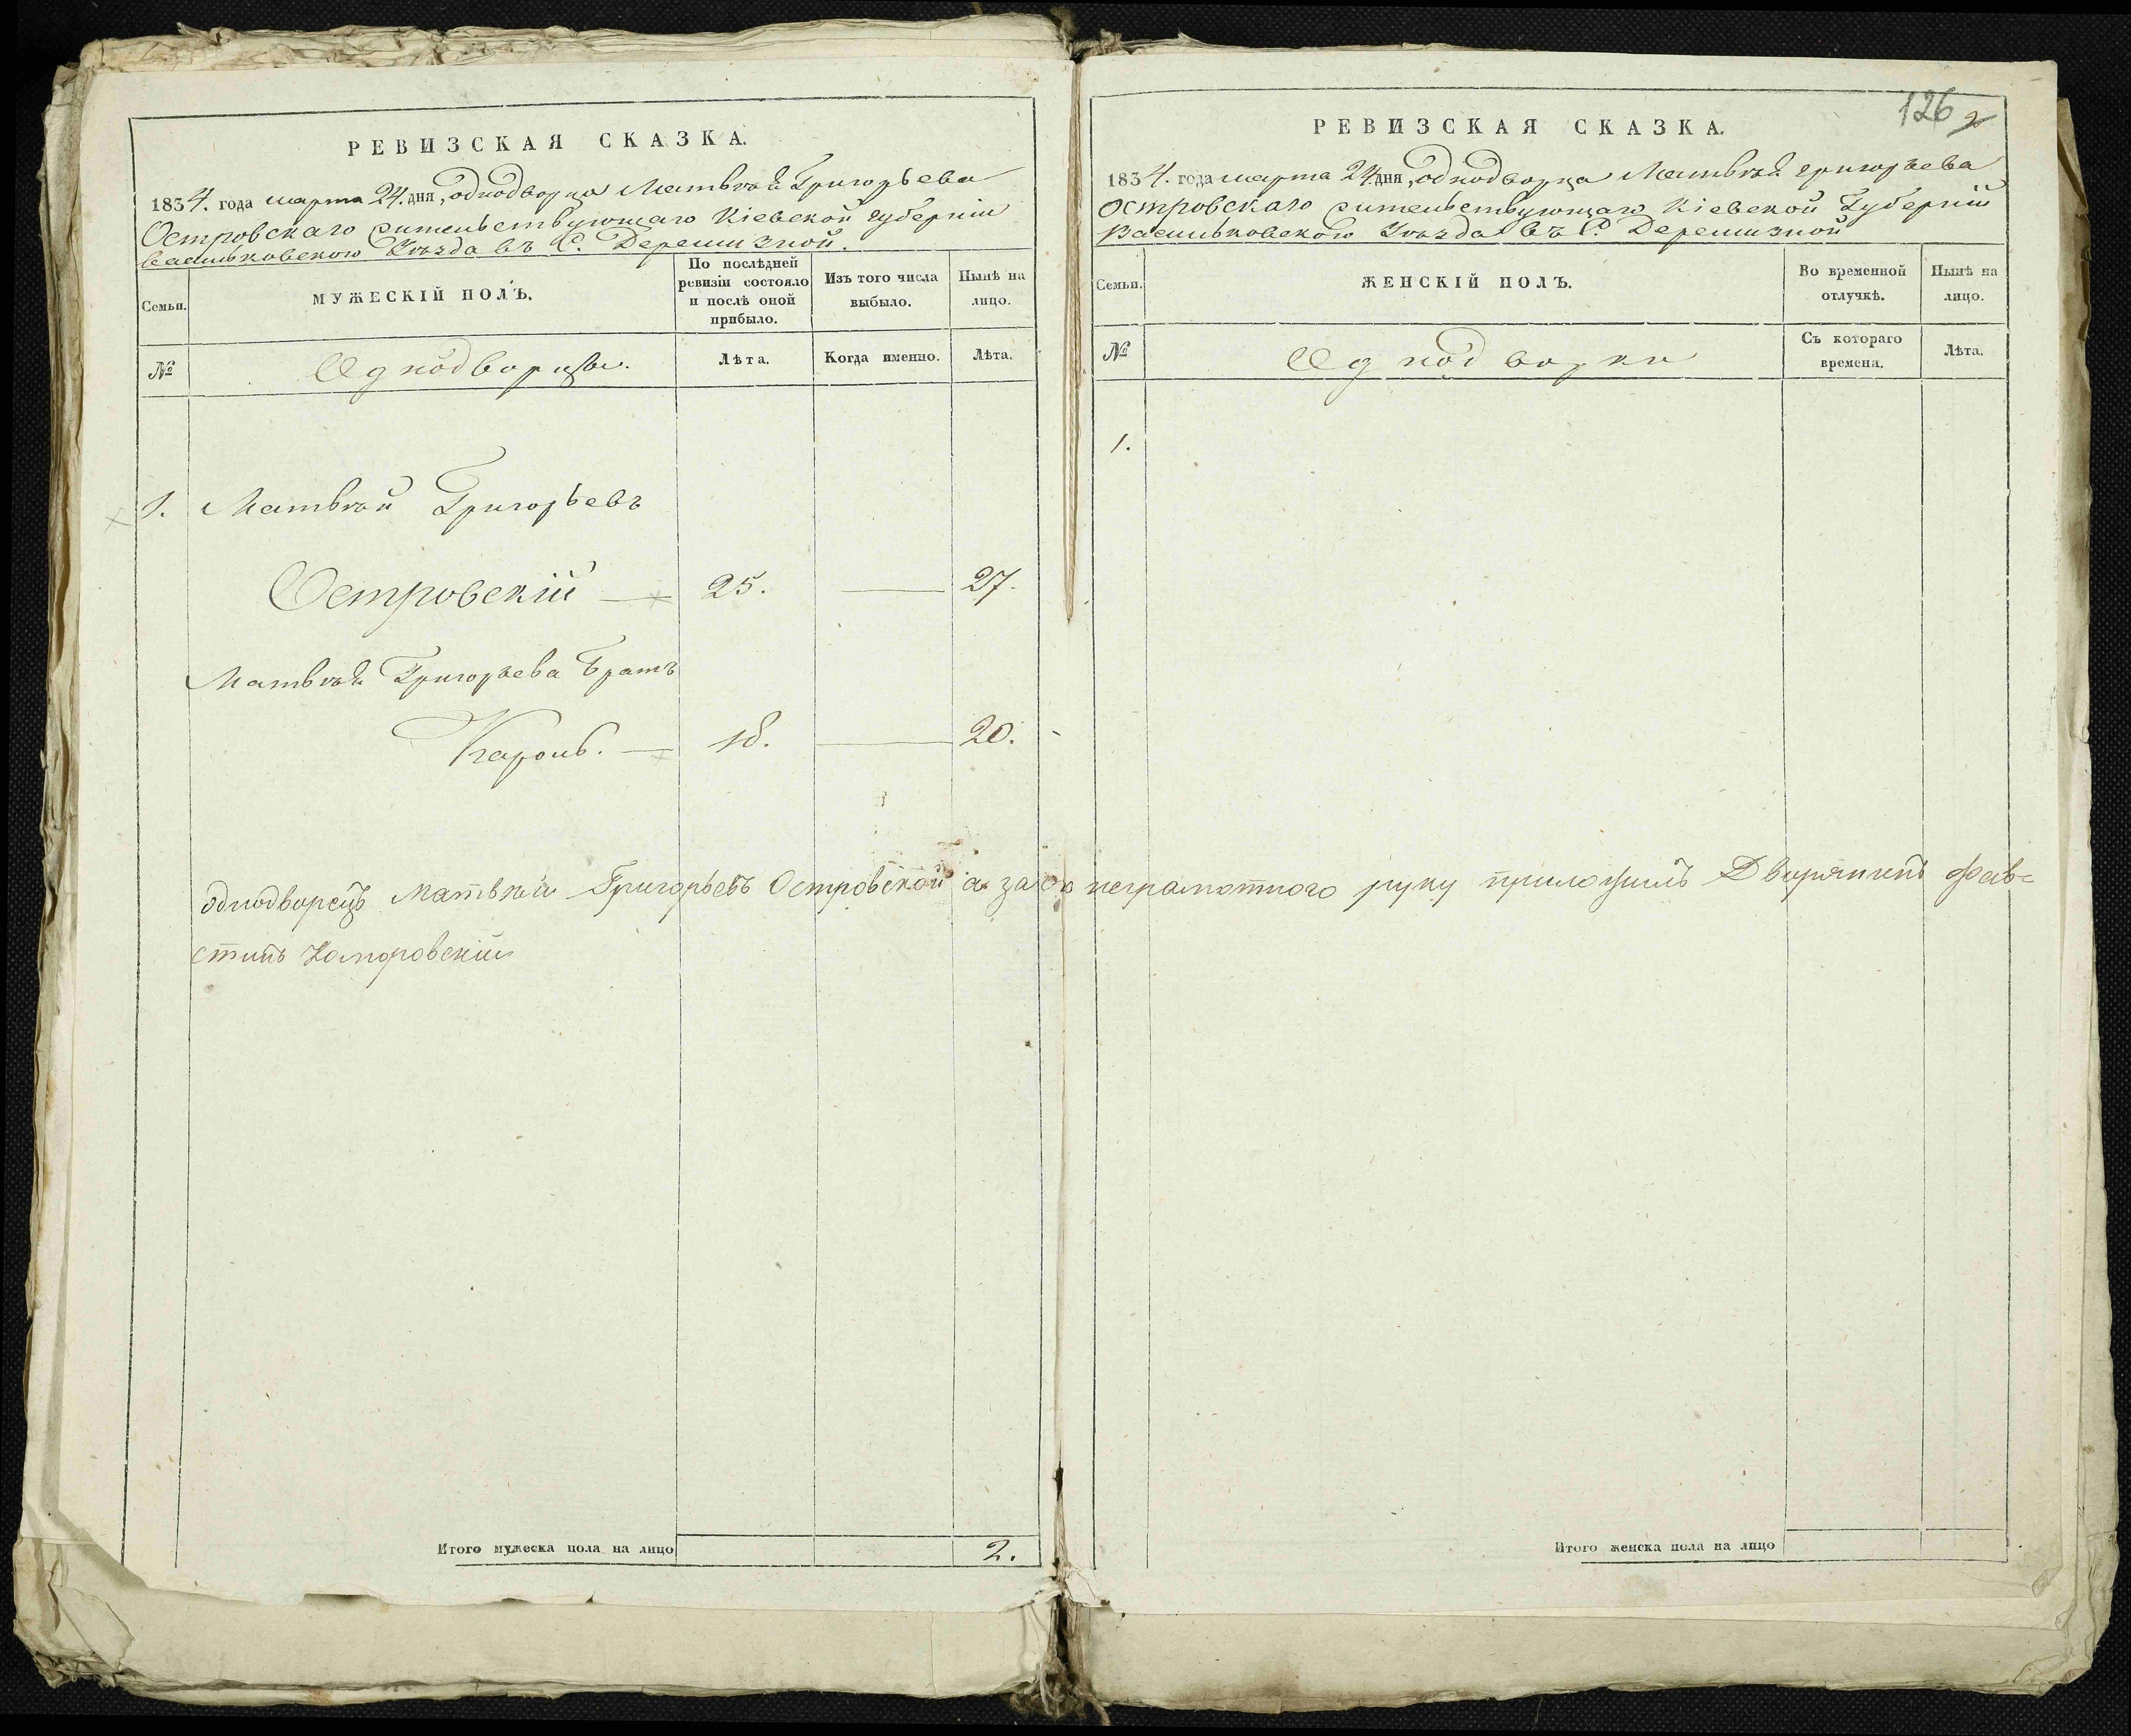 РЕВИЗСКАЯ СКАЗКА.
1834. года марта 24. дня, однодворца Матвѣя Григорьева
Островскаго жительствующаго Кіевской губерніи
Васильковского Уѣзда въ С. Деремизной.
Семьи.
МУЖЕСКІЙ ПОЛЪ.
По послѣдней
ревизіи состояло
и послѣ оной
прибыло.
Изъ того числа
выбыло.
Нынѣ на
лицо.
№
Однодворцы.
Лѣта.
Когда именно.
Лѣта.
1. Матвѣй Григорьевъ
Островскій — 25. — 27.
Матвѣя Григорьева братъ
Кароль. — 18. — 20.
Однодворецъ Матвѣй Григорьевъ Островской а за его неграмотного руку приложилъ Дворянинъ Фав-
стинъ
Итого мужеска пола на лицо 2.
126
2
РЕВИЗСКАЯ СКАЗКА.
1834. года марта 24. дня, однодворца Матвѣя Григорьева
Островскаго жительствующаго Кіевской Губерніи
Васильковского Уѣзда въ С. Деремизной
Семьи.
ЖЕНСКІЙ ПОЛЪ.
Во временной
отлучкѣ.
Нынѣ на
лицо.
№
Однодворки
Съ котораго
времена.
Лѣта.
1.
Итого женска пола на лицо